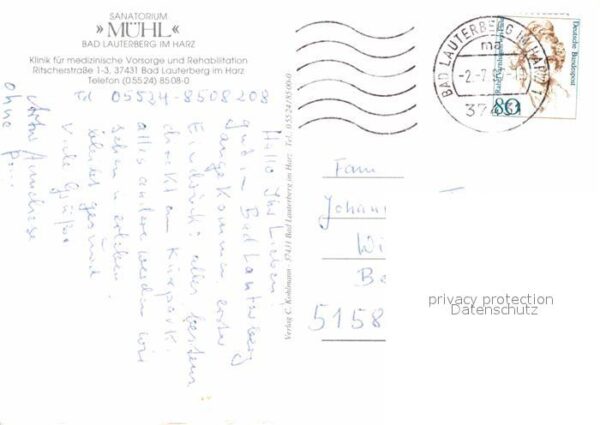 SANATORIUM
» MÜHL «
BAD LAUTERBERG IM HARZ
Klinik für medizinische Vorsorge und Rehabilitation
Ritscherstraße 1-3, 37431 Bad Lauterberg im Harz
Telefon (05524) 8508-0
Tel 05524-8508208
Hallo Ihr Lieben!
gut in Bad Lauterberg
angekommen, erster
Eindruck: alles bestens
direkt am Kurpark.
alles andere werden wir
sehen u. erleben.
bleibt gesund
Viele Grüße
Anneliese
ohne
Verlag C. Kohlmann · 37431 Bad Lauterberg im Harz · Tel. 05524/8500-0
BAD LAUTERBERG IM HARZ 1
ma
-2.-7.
3743
Deutsche Bundespost
80
Fam
Johann
Wi
Be
5158
privacy protection
Datenschutz